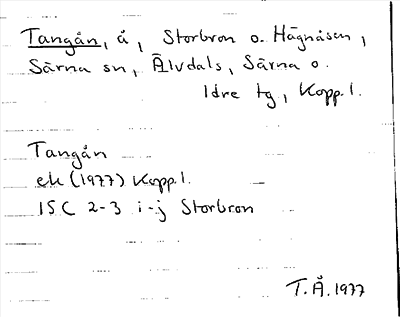 Tangån, å, Storbron o. Hägnåsen,
Särna sn, Älvdals, Särna o.
Idre tg, Kopp. l.
Tangån
ek (1977) Kopp. l.
15C 2-3 i-j Storbron
T.Å. 1977